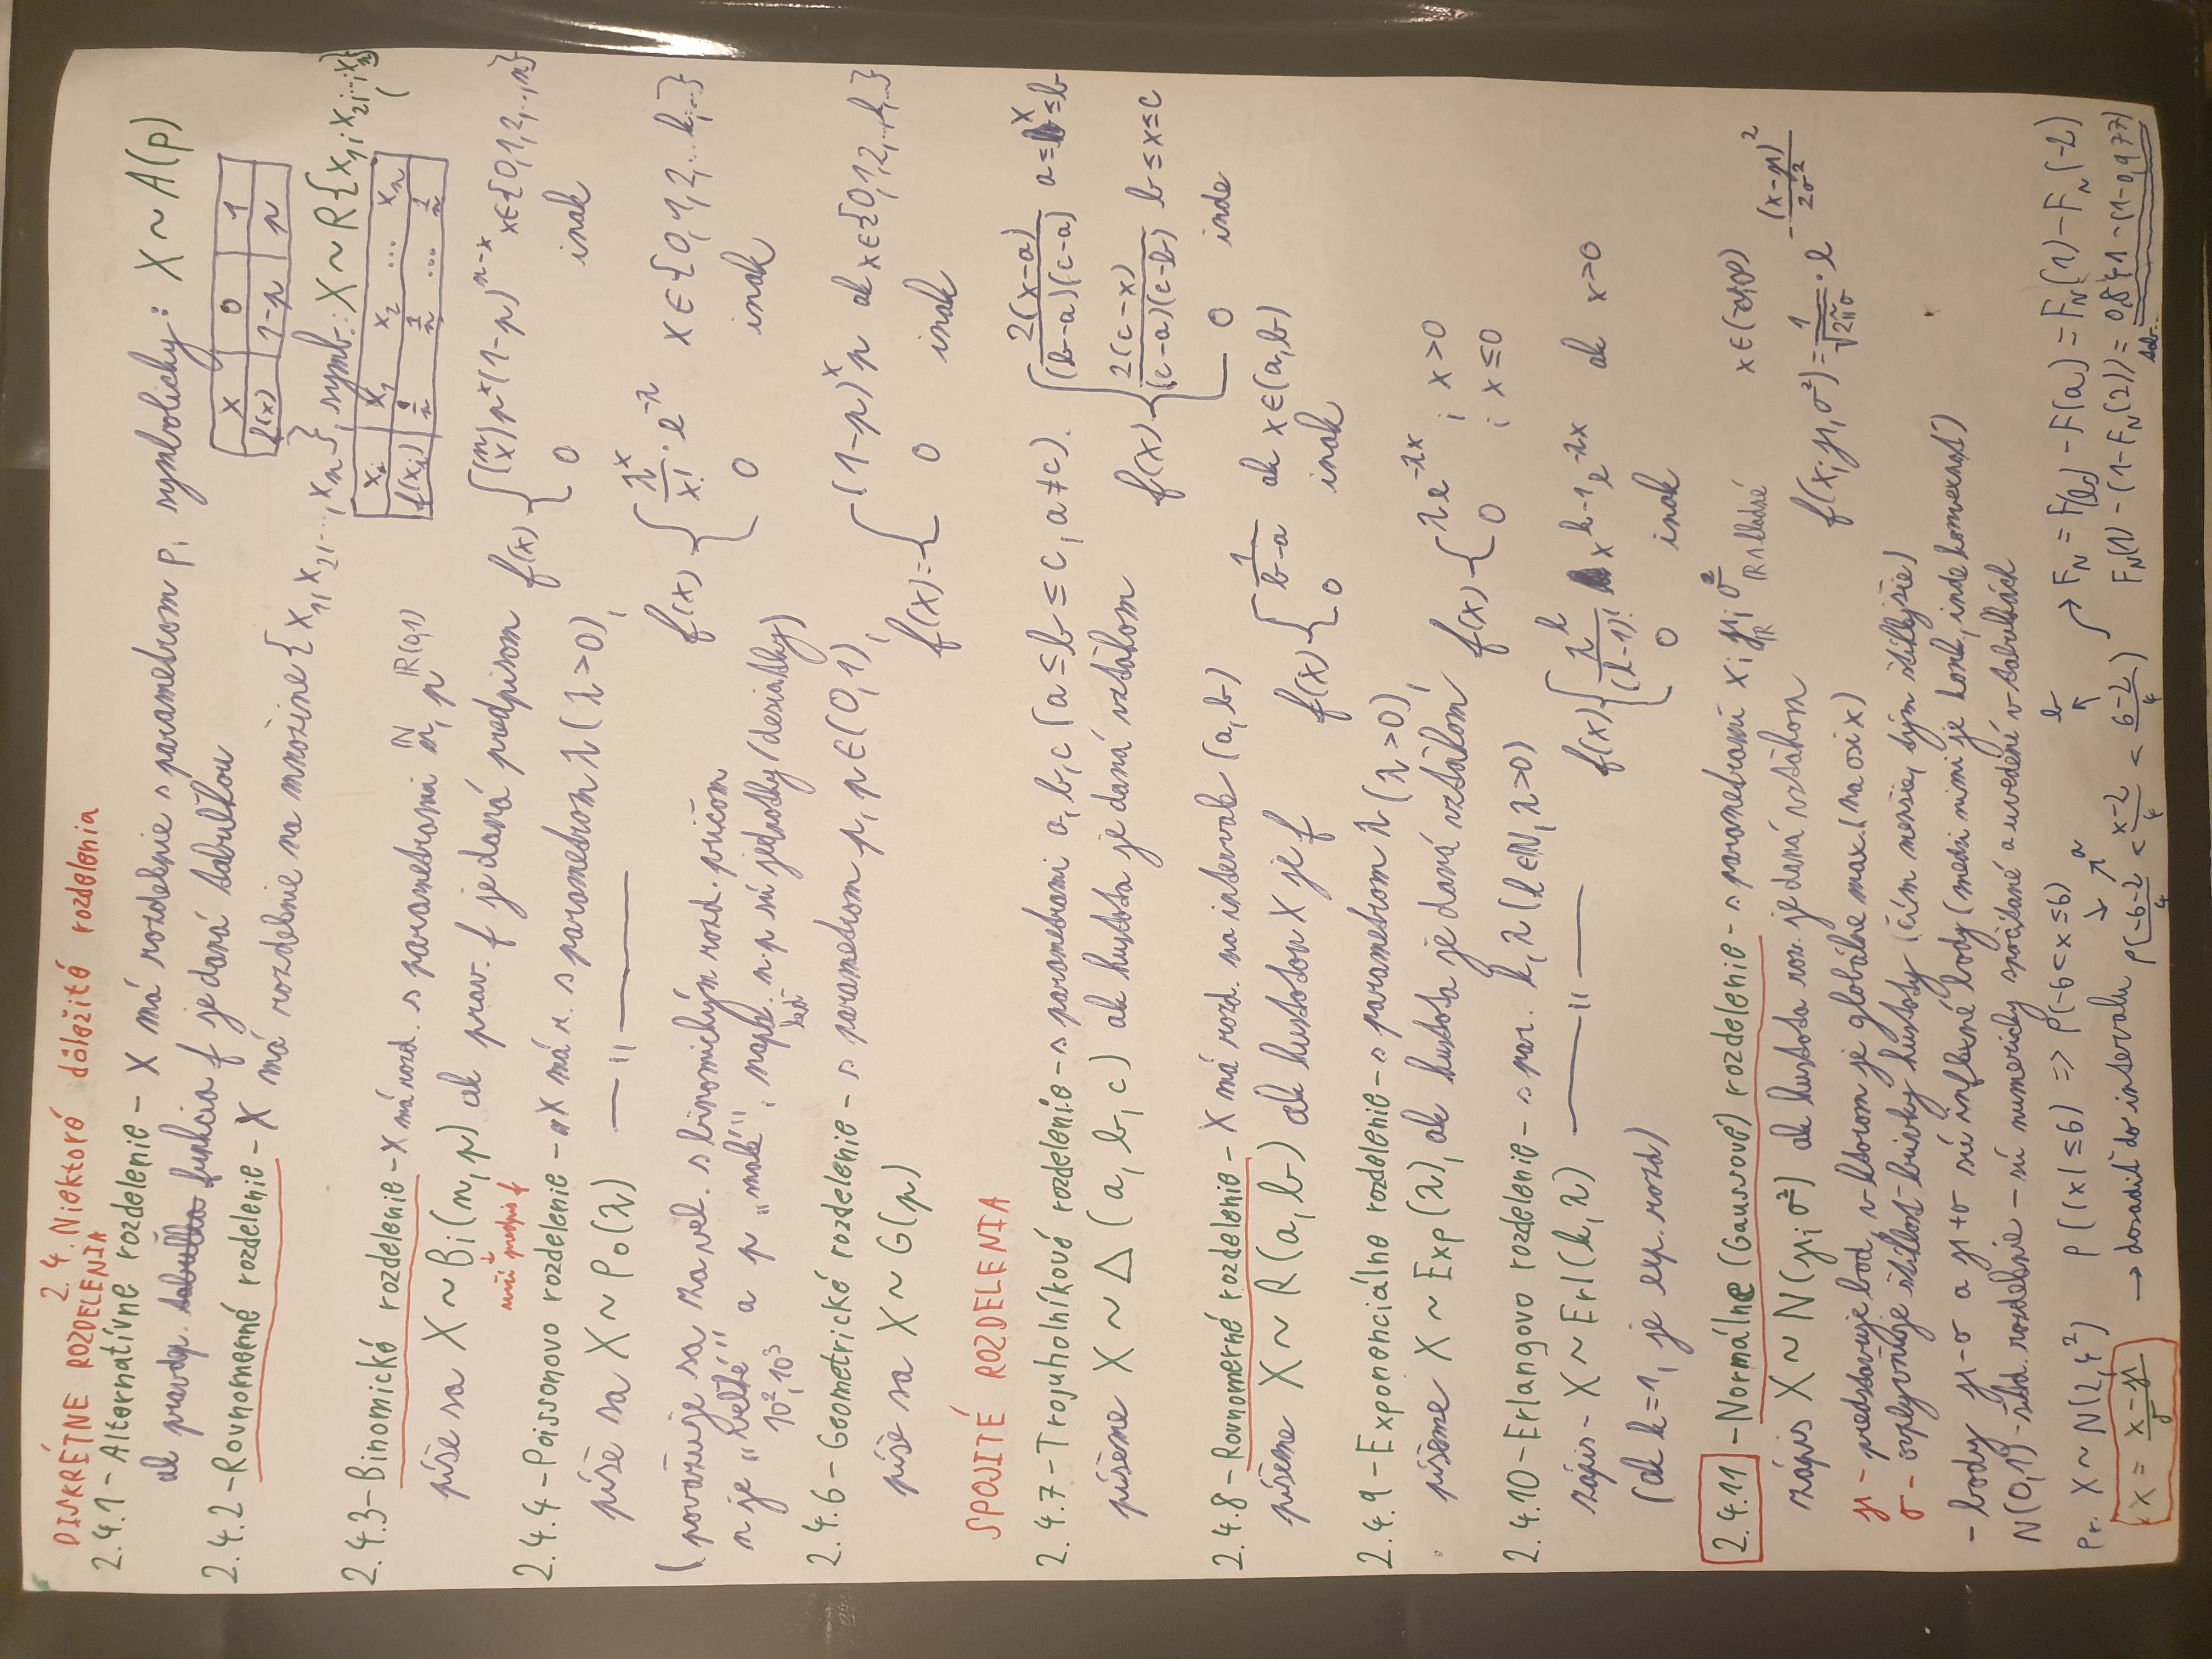 2.4. Niektoré dôležité rozdelenia
DISKRÉTNE ROZDELENIA
2.4.1 - Alternatívne rozdelenie - X má rozdelenie s parametrom p, symbolicky: X ~ A(p)
ak pravdep. funkcia f je daná tabuľkou
x 0 1
f(x) 1-p p
2.4.2 - Rovnomerné rozdelenie - X má rozdelenie na množine {x₁, x₂, ..., xₙ}, symb.: X ~ R{x₁; x₂; ...; xₙ}
xᵢ x₁ x₂ ... xₙ
f(xᵢ) 1/n 1/n ... 1/n
2.4.3 - Binomické rozdelenie - X má rozd. s parametrami n, p
ℕ ℝ(0,1)
píše sa X ~ Bi(n, p) ak prav. f je daná predpisom
určí predpis f
f(x) { (n x) pˣ (1-p)ⁿ⁻ˣ x∈{0,1,2,..,n}
0 inak
2.4.4 - Poissonovo rozdelenie - X má r. s parametrom λ (λ>0),
píše sa X ~ Po(λ) — 〃 —
f(x) { λˣ/x! · e^-λ x∈{0,1,2,..k,..}
0 inak
(považuje sa za vel. s binomickým rozd. pričom
n je „veľké" a p „malé", napr. n·p sú jednotky/desiatky)
10², 10³ keď
2.4.6 - Geometrické rozdelenie - s parametrom p, p∈(0,1),
píše sa X ~ G(p)
f(x) = { (1-p)ˣ p ak x∈{0,1,2,..,k,..}
0 inak
SPOJITÉ ROZDELENIA
2.4.7 - Trojuholníkové rozdelenie - s parametrami a, b, c (a ≤ b ≤ c, a ≠ c).
píšeme X ~ Δ (a, b, c) ak hustota je daná vzťahom
f(x) { 2(x-a)/(b-a)(c-a) a ≤ x ≤ b
2(c-x)/(c-a)(c-b) b ≤ x ≤ c
0 inde
2.4.8 - Rovnomerné rozdelenie - X má rozd. na intervale (a, b)
píšeme X ~ R(a, b) ak hustotou X je f
f(x) { 1/b-a ak x∈(a, b)
0 inak
2.4.9 - Exponenciálne rozdelenie - s parametrom λ (λ>0),
píšeme X ~ Exp(λ), ak hustota je daná vzťahom
f(x) { λe^-λx ; x>0
0 ; x≤0
2.4.10 - Erlangovo rozdelenie - s par. k, λ (k∈ℕ, λ>0)
zápis - X ~ Erl(k, λ) — 〃 —
f(x) { λᵏ/(k-1)! xᵏ⁻¹ e^-λx ak x>0
0 inak
(ak k=1, je exp. rozd)
2.4.11 - Normálne (Gaussové) rozdelenie - s parametrami x; μ; σ²
ℝ ℝ kladné x∈(-∞;∞)
zápis X ~ N(μ; σ²) ak hustota roz. je daná vzťahom
f(x; μ, σ²) = 1/√2π σ · e^-(x-μ)²/2σ²
μ - predstavuje bod, v ktorom je globálne max. (na osi x)
σ - ovplyvňuje štíhlosť krivky hustoty (čím menšie, tým štíhlejšie)
- body μ-σ a μ+σ sú inflexné body (medzi nimi je konk, inde konvexnosť)
N(0,1) - štd. rozdelenie - sú numericky spočítané a uvedené v tabuľkách
Pr. X ~ N(2, 4²) P(|x| ≤ 6) => P(-6 < x ≤ 6)
a b
x = x-μ/σ → dosadiť do intervalu P(-6-2/4 < x-2/4 < 6-2/4)
→ F_N = F(b) - F(a) = F_N(1) - F_N(-2)
F_N(1) - (1-F_N(2)) = 0,841 - (1-0,977)
tab..